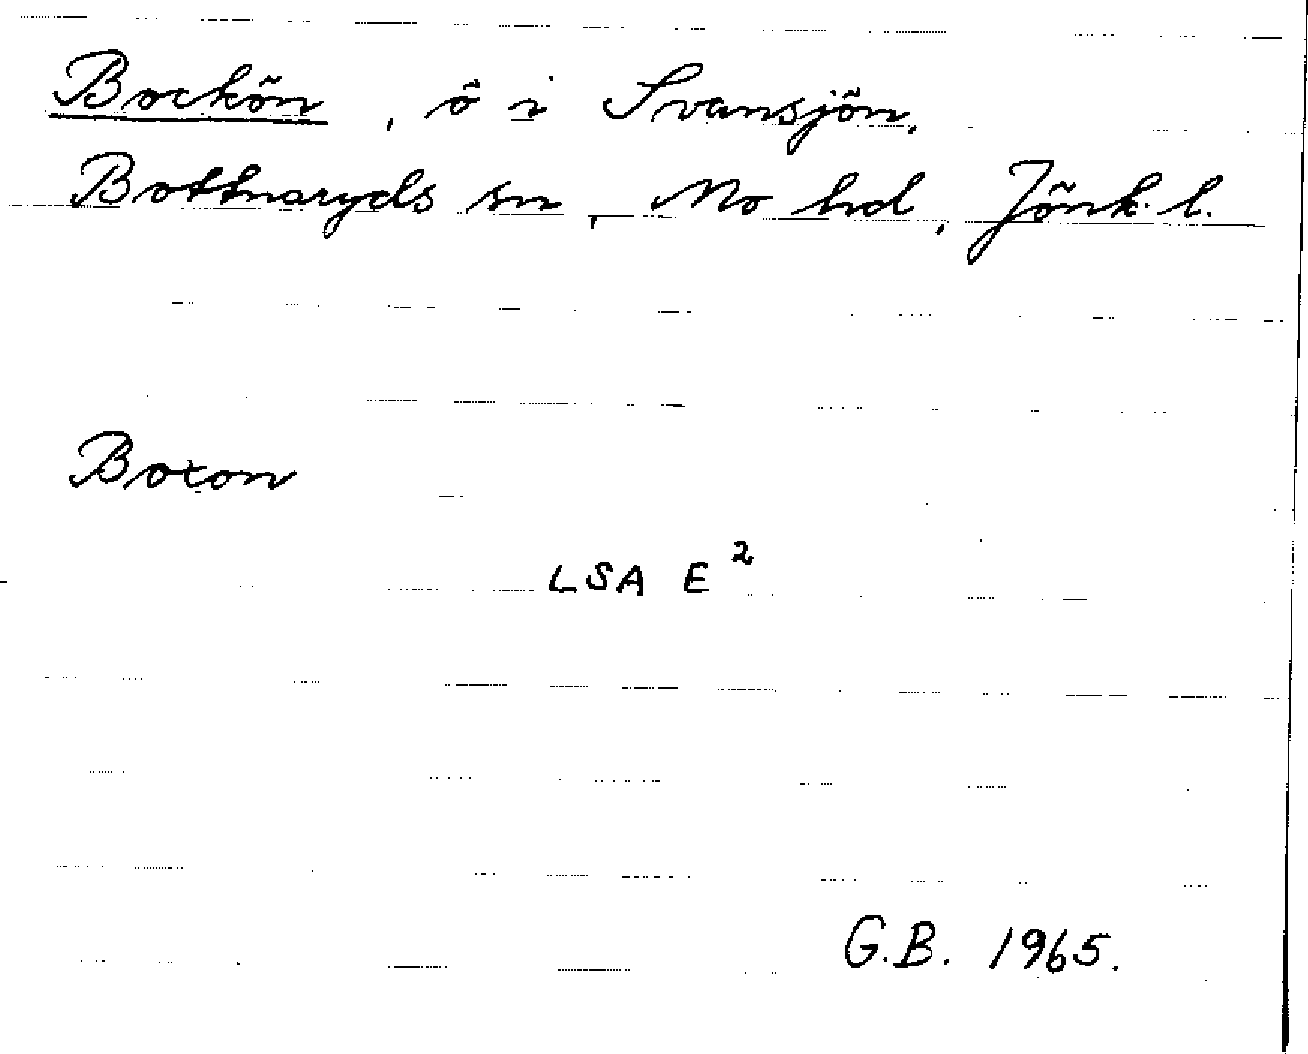 Bockön, ö i Svansjön,
Bottnaryds sn, Mo hd, Jönk. l.
Boxon
LSA E²
G.B. 1965.